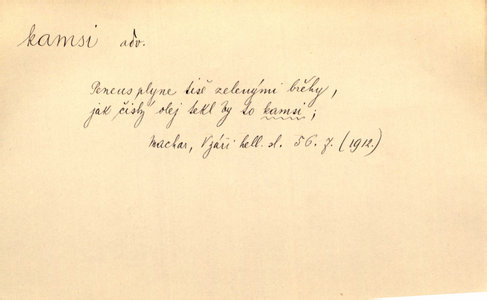 kamsi adv.
Peneus plyne tiše zelenými břehy,
jak čistý olej tekl by to kamsi;
Machar, V září hell. sl. 56. 7. (1912.)